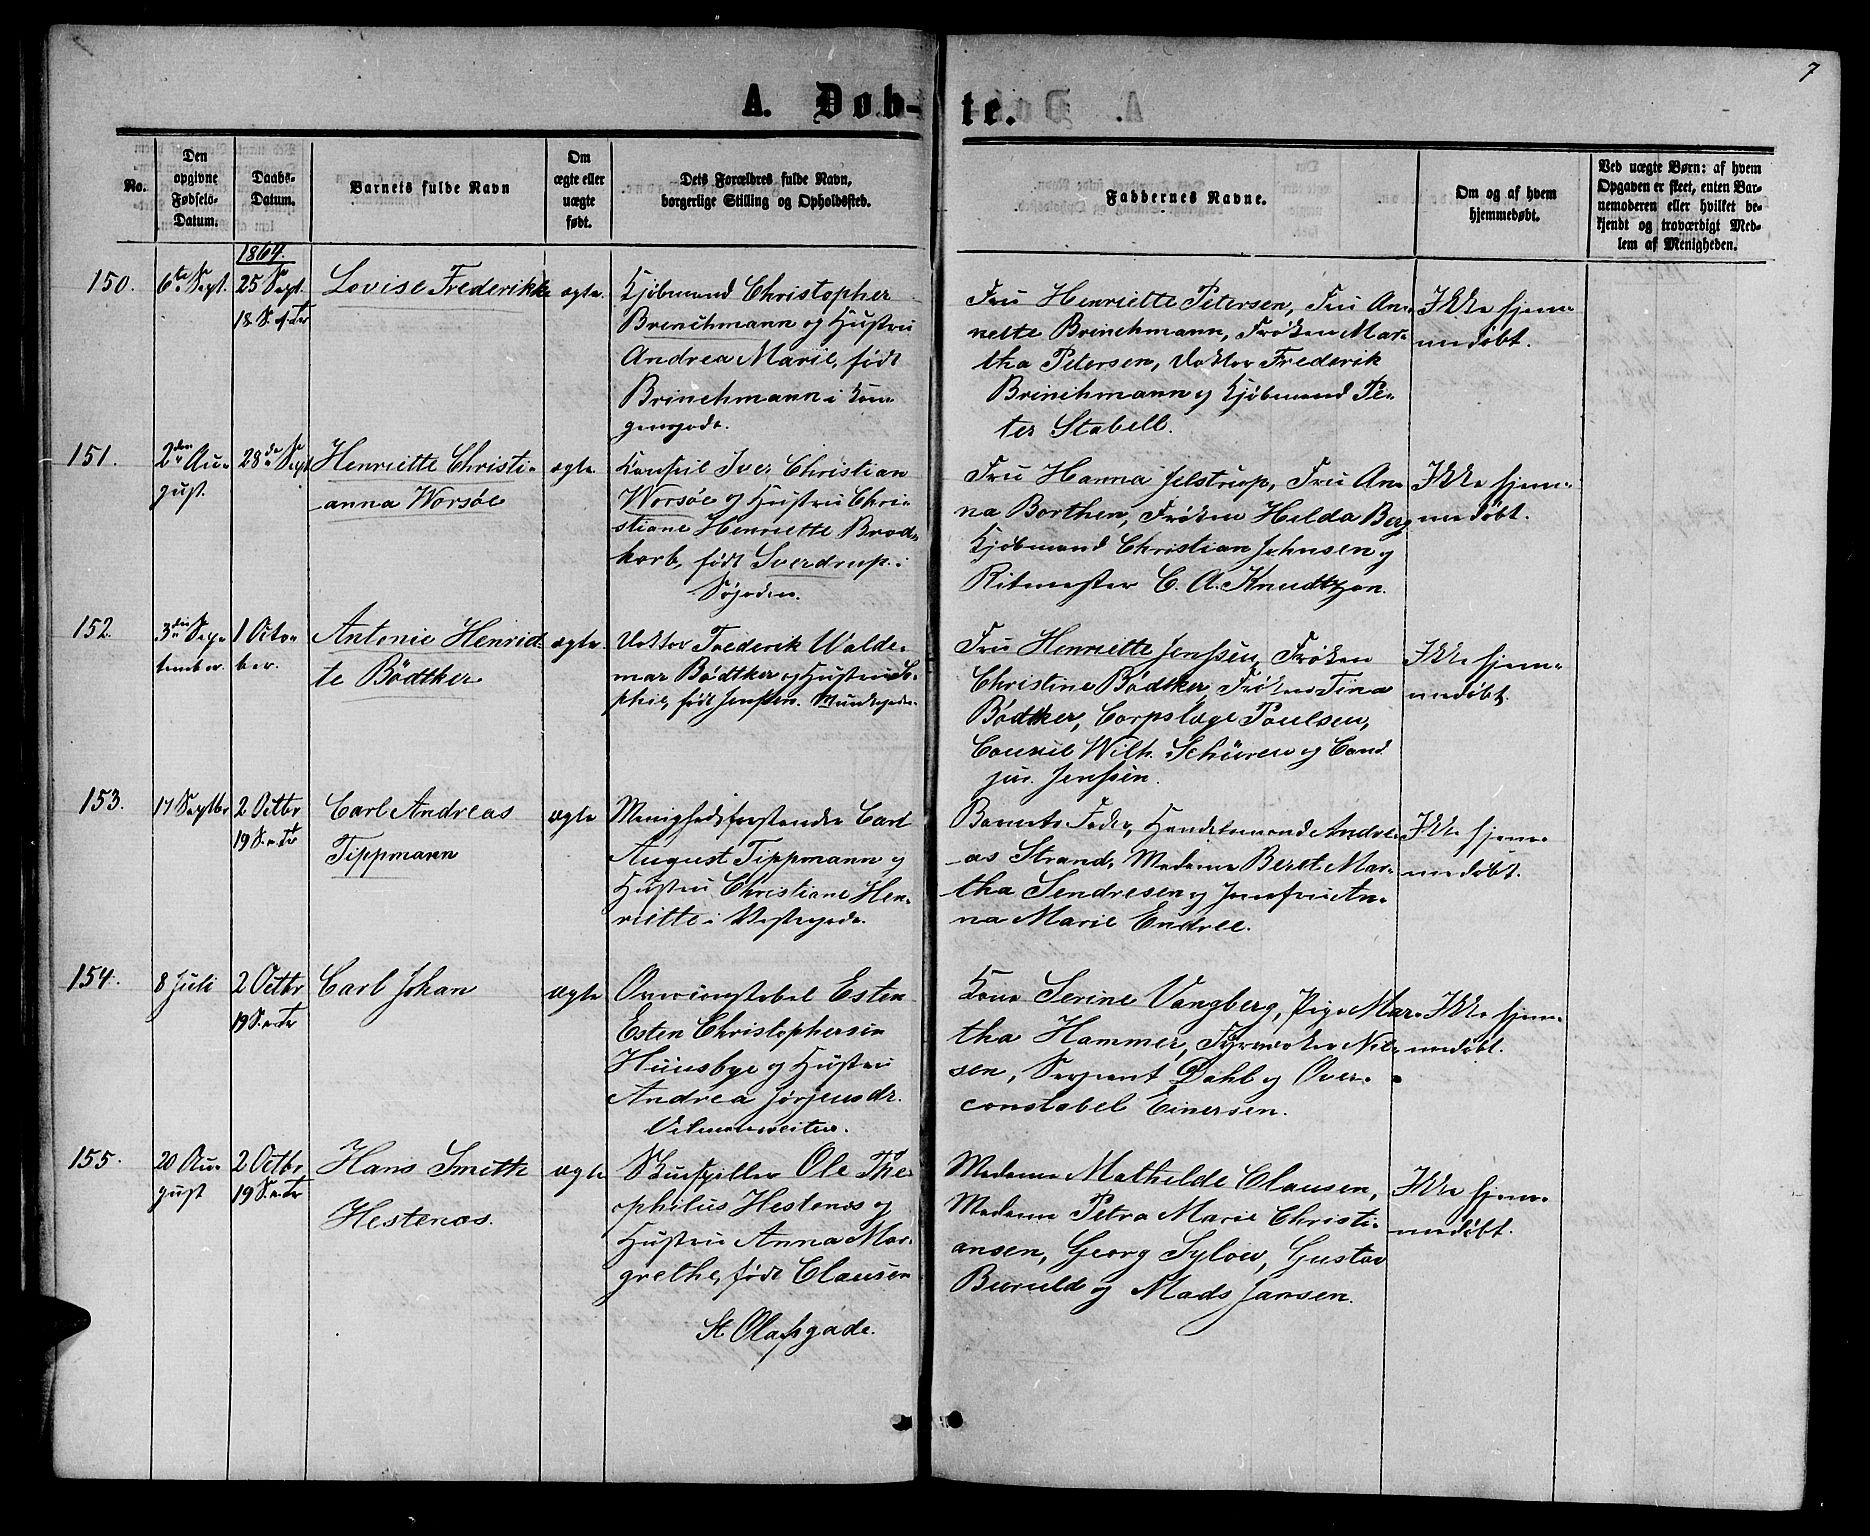 7
A. Døb-te.
No.
Den
opgivne
Fødsels-
Datum.
Daabs-
Datum.
Barnets fulde Navn
Om
ægte eller
uægte
født.
Dets Forældres fulde Navn,
borgerlige Stilling og Opholdssted.
Faddernes Navne.
Om og af hvem
hjemmedøbt.
Ved uægte Børn: af hvem
Opgaven er skeet, enten Bar-
nemoderen eller hvilket be-
kjendt og troværdigt Med-
lem af Menigheden.
1864.
150.
6te Sept.
25 Sept.
18 S. e. Tr
Lovise Frederikke
ægte.
Kjøbmand Christopher
Brinchmann og Hustru
Andrea Marie, født
Brinchmann i Kon-
gensgade.
Fru Henriette Petersen, Fru An-
nette Brinchmann, Frøken Mar-
tha Petersen, Doktor Frederik
Brinchmann og Kjøbmand Pe-
ter Stabell.
Ikke hjem-
medøbt.
151.
2den Au-
gust.
28de Sept
Henriette Christi-
anna Worsøe
ægte
Konsul Iver Christian
Worsøe og Hustru Chri-
stiane Henriette Brod-
korb, født Sverdrup i
Søgaden.
Fru Hanna Jelstrup, Fru An-
na Borthen, Frøken Helda Berg
Kjøbmand Christian Johnsen og
Ritmester C. A. Knudtzon.
Ikke hjem-
medøbt.
152.
3die Sep-
tember.
1 Octo-
ber.
Antonie Henriet-
te Bödtker
ægte.
Doktor Frederik Walde-
mar Bödtker og Hustru So-
phie, født Jenssen. Munkegaden.
Fru Henriette Jenssen, Frøken
Christine Bödtker, Frøken Tina
Bödtker, Corpslæge Poulsen,
Consul Wilh. Schüren og Cand
jur. Jenssen.
Ikke hjem-
medøbt.
153.
17 Septbr
2 Octbr
19 S. e. Tr
Carl Andreas
Tippmann
ægte
Menighedsforstander Carl
August Tippmann og
Hustru Christiane Hen-
riette i Vestergade.
Barnets Fader, Handelsmand Andre-
as Strand, Madame Beret Mar-
tha Sendresen og Jomfru An-
na Marie Endree.
Ikke hjem-
medøbt.
154.
8 Juli
2 Octbr
19 S. e. Tr
Carl Johan
ægte
Overconstabel Esten
Esten Christophersen
Huusbye og Hustru
Andrea Jørgensdr.
Kone Serine Vangberg, Pige Mar-
tha Hammer, Fyrværker Niel-
sen, Sergeant Dahl og Over-
constabel Einersen.
Ikke hjem-
medøbt.
155.
20 Au-
gust
2 Octbr
19 S. e. Tr
Hans Smith
Hestenæs.
ægte
Skuespiller Ole The-
ophilus Hestenæs og
Hustru Anna Mar-
grethe, født Clausen
St. Olafsgade.
Madame Mathilde Clausen,
Madame Petra Marie Christi-
ansen, Georg Sylow, Gustav
Buruld og Mads Jansen.
Ikke hjem-
medøbt.